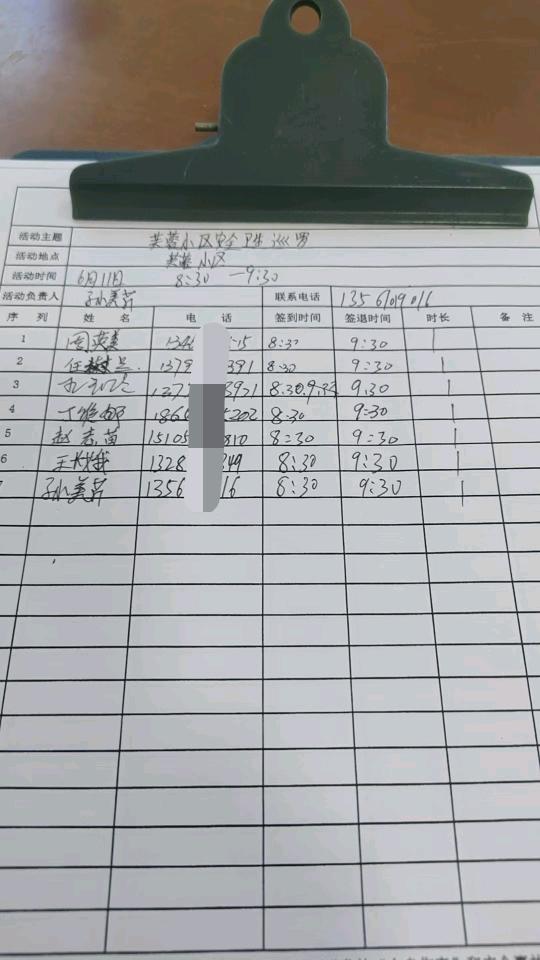 活动主题 芙蓉小区安全卫生巡逻
活动地点 芙蓉小区
活动时间 6月11日 8:30 —9:30
活动负责人 孙美芹 联系电话
序 列 姓 名 电 话 签到时间 签退时间 时长 备 注
1 周英美 5:15 8:30 9:30 1
2 1379 391 8:30 9:30 1
3 3931 8:30 9:30 1
4 1866 5202 8:30 9:30 1
5 赵志苗 15105 810 8:30 9:30 1
6 1328 349 8:30 9:30 1
7 孙美芹 1356 16 8:30 9:30 1